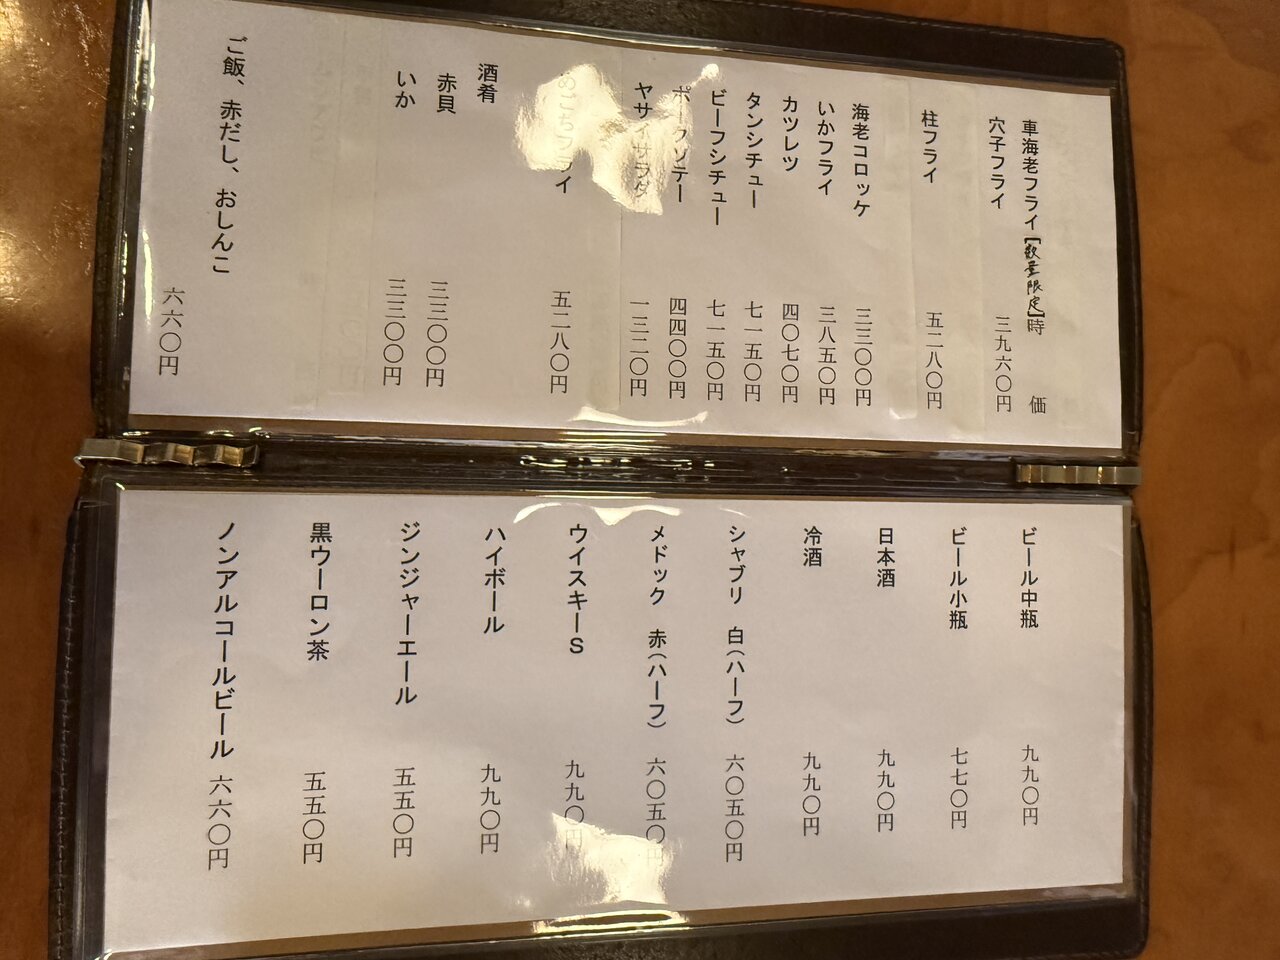 車海老フライ【数量限定】時 価
穴子フライ 三九六〇円
柱フライ 五二八〇円
海老コロッケ 三三〇〇円
いかフライ 三八五〇円
カツレツ 四〇七〇円
タンシチュー 七一五〇円
ビーフシチュー 七一五〇円
ポークソテー 四四〇〇円
ヤサイサラダ 一三二〇円
五二八〇円
酒肴
赤貝 三三〇〇円
いか 三三〇〇円
ご飯、赤だし、おしんこ
六六〇円
ビール中瓶 九九〇円
ビール小瓶 七七〇円
日本酒 九九〇円
冷酒 九九〇円
シャブリ 白(ハーフ) 六〇五〇円
メドック 赤(ハーフ) 六〇五〇円
ウイスキーS 九九〇円
ハイボール 九九〇円
ジンジャーエール 五五〇円
黒ウーロン茶 五五〇円
ノンアルコールビール 六六〇円